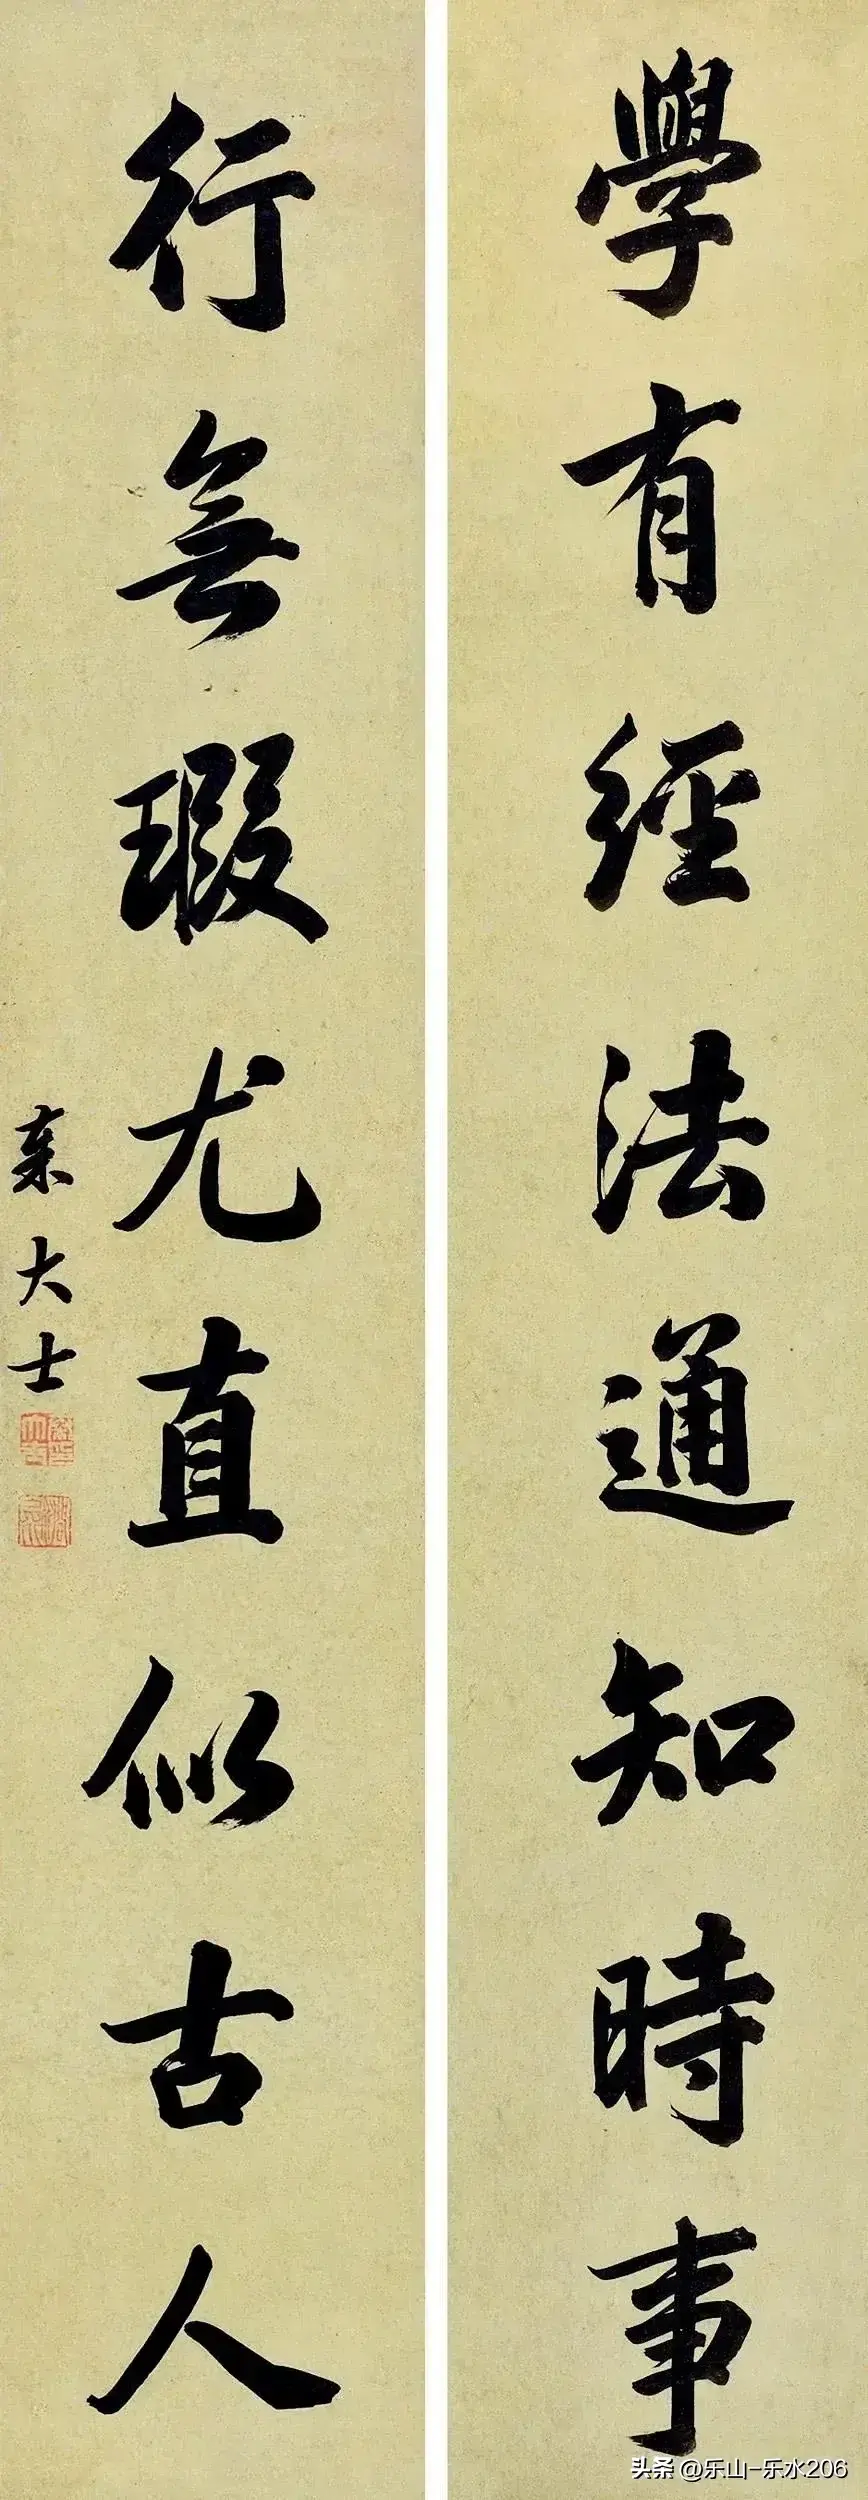 學有經法通知時事
行無瑕尤直似古人
秦大士
头条 @乐山-乐水206